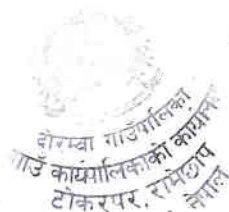 दोरम्बा गाउँपालिका
गाउँ कार्यपालिकाको कार्यालय
टोकरपुर, रामेछाप
नेपाल